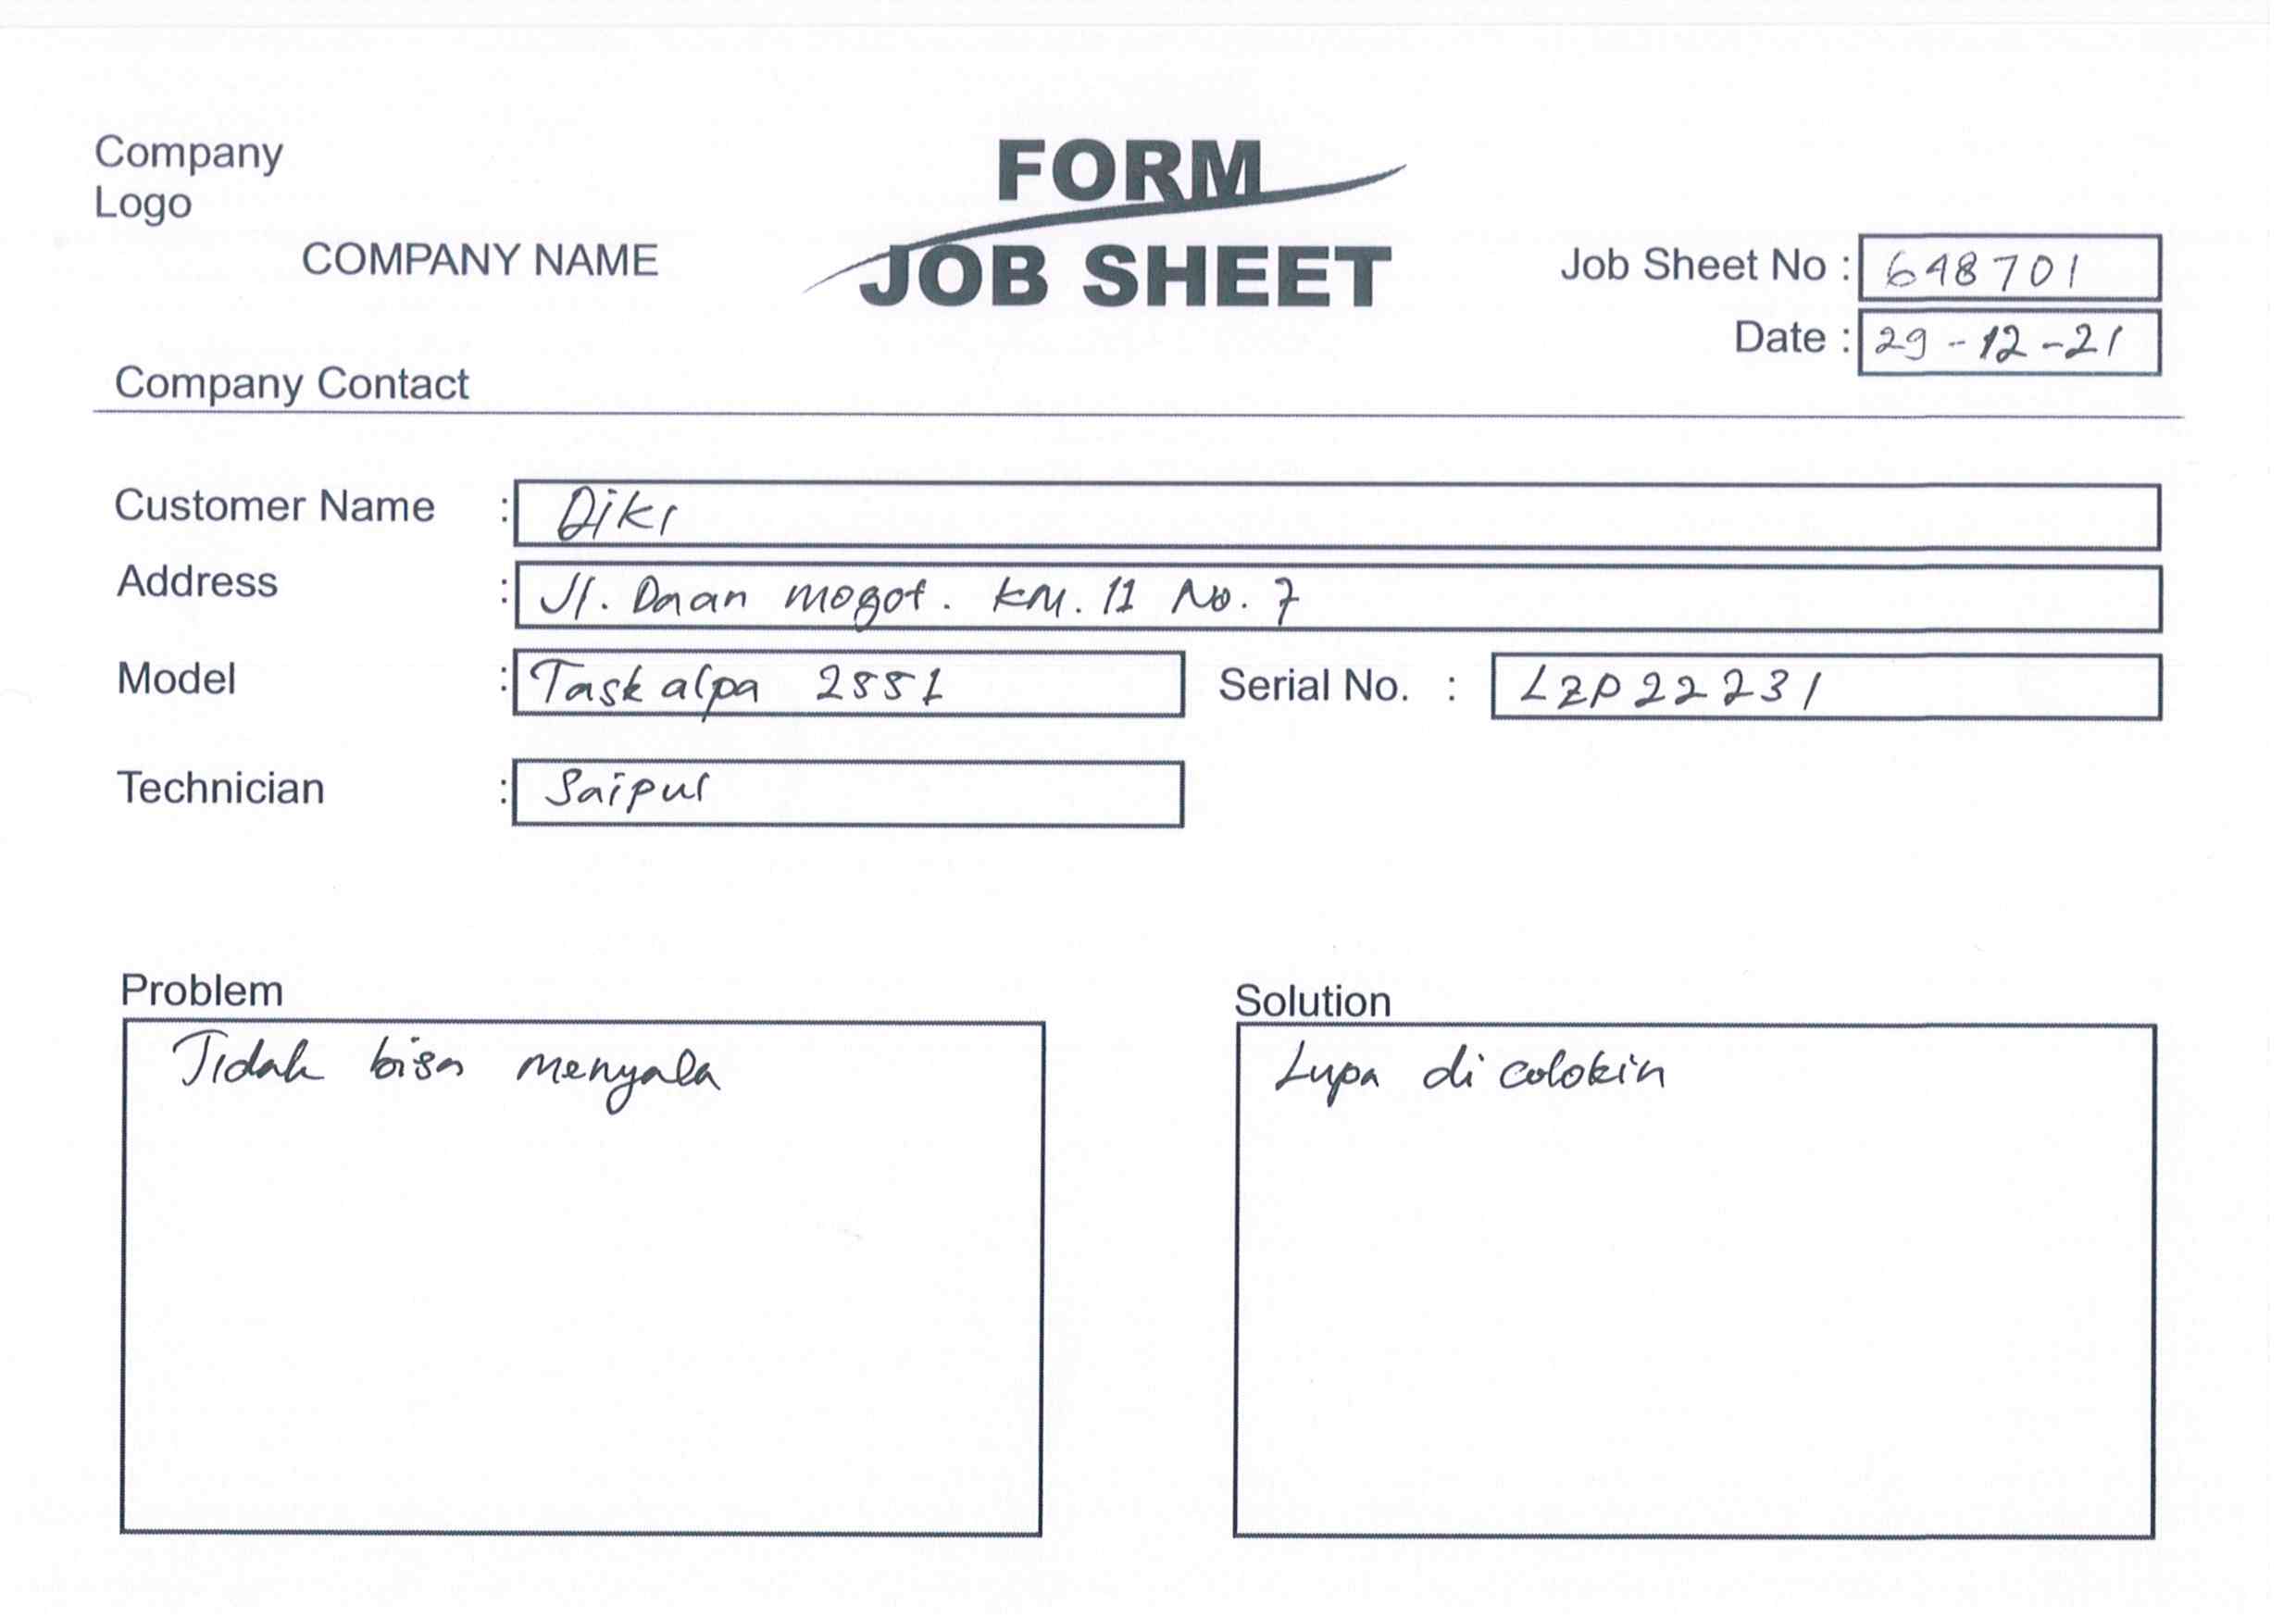 Company
Logo
COMPANY NAME
FORM
JOB SHEET
Job Sheet No : 648701
Date : 29-12-21
Company Contact
Customer Name : Diki
Address : Jl. Daan mogot. KM. 11 No. 7
Model : Taskalpa 2551 Serial No. : LZP22231
Technician : Saipul
Problem
Tidak bisa menyala
Solution
Lupa di colokin